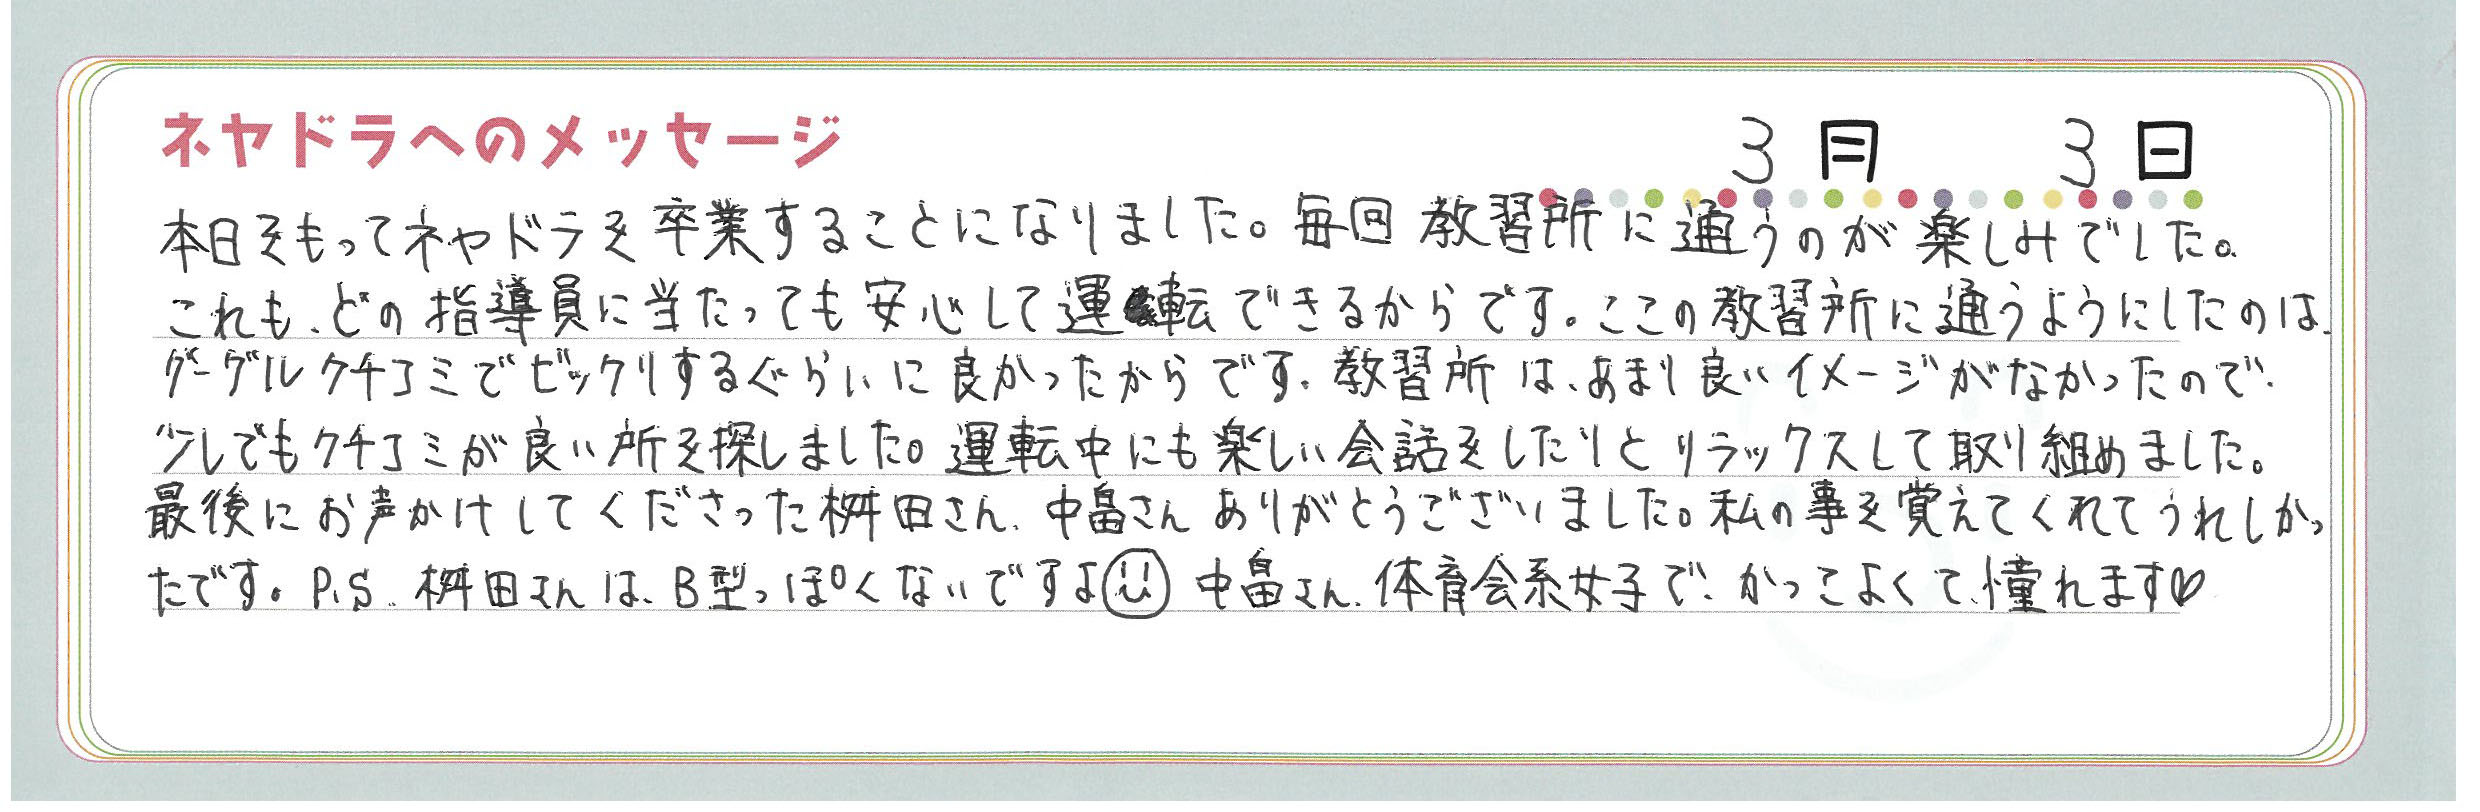 ネヤドラへのメッセージ
3月 3日
本日をもってネヤドラを卒業することになりました。毎回教習所に通うのが楽しみでした。
これも、どの指導員に当たっても安心して運転できるからです。ここの教習所に通うようにしたのは、
グーグルクチコミでビックリするぐらいに良かったからです。教習所は、あまり良いイメージがなかったので、
少しでもクチコミが良い所を探しました。運転中にも楽しい会話をしたりとリラックスして取り組めました。
最後にお声かけしてくださった桝田さん、中畠さんありがとうございました。私の事を覚えてくれてうれしかっ
たです。P.S. 桝田さんは、B型っぽくないですよ 中畠さん、体育会系女子で、かっこよくて、憧れます♡